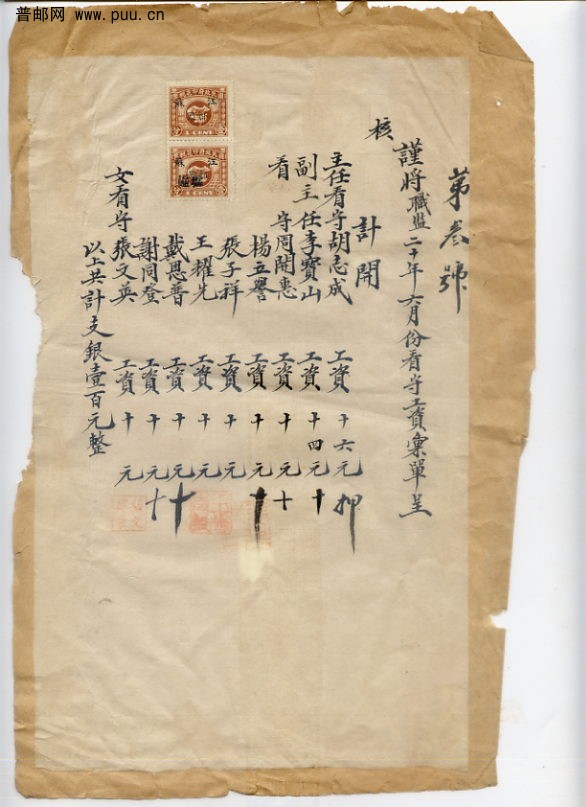 普邮网 www.puu.cn
第叁號
謹將職監二十年六月份看守工資彙單呈
核
計開
主任看守胡志成 工資 十六元 押
副主任李寶山 工資 十四元 十
看守周開惠 工資 十元 十
楊立譽 工資 十元 十
張子祥 工資 十元
王耀先 工資 十元
戴恩普 工資 十元 十
謝同登 工資 十元 十
女看守張文英 工資 十元
以上共計支銀壹百元整
江蘇
1 CENT
江蘇
1 CENT